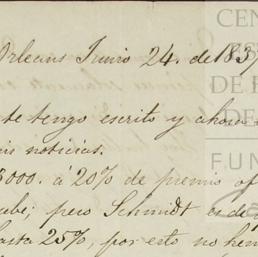 Orleans Junio 24. de 183
te tengo escrito y ahora
is noticias.
3000. á 20% de premio of
abe; pero Schmidt es de
hasta 25%, por esto no hem
CEN
DE
DE
FUN